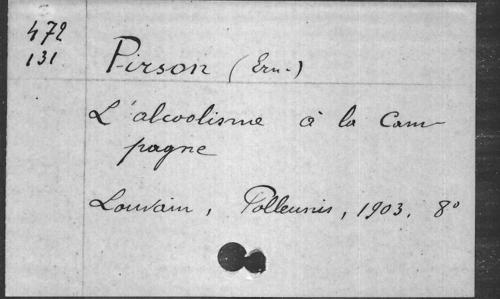 472
131
Pirson (Ern.)
L'alcoolisme à la Cam-
pagne
Louvain, Polleunis, 1903. 8°